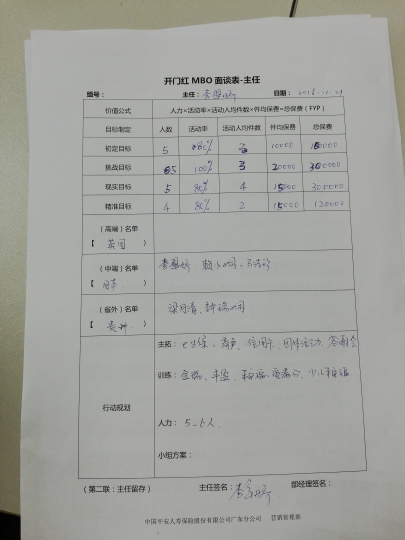 开门红 MBO 面谈表-主任
组号： 主任： 日期：2018.11.29
价值公式 人力×活动率×活动人均件数×件均保费=总保费（FYP）
目标制定 人数 活动率 活动人均件数 件均保费 总保费
初定目标 5 80% 10000
挑战目标 5 100% 3 20000 300000
现实目标 5 80% 4 15000 300000
精准目标 4 80% 2 15000 120000
（高端）名单
【英国】
（中端）名单
【日本】
（省外）名单
梁月清、钟瑞
行动规划
主拓：e生保、信用卡、答谢会
训练：金瑞、丰盈、少儿平安福
人力：5-6人
小组方案：
（第二联：主任留存） 主任签名： 部经理签名：
中国平安人寿保险股份有限公司广东分公司 营销管理部